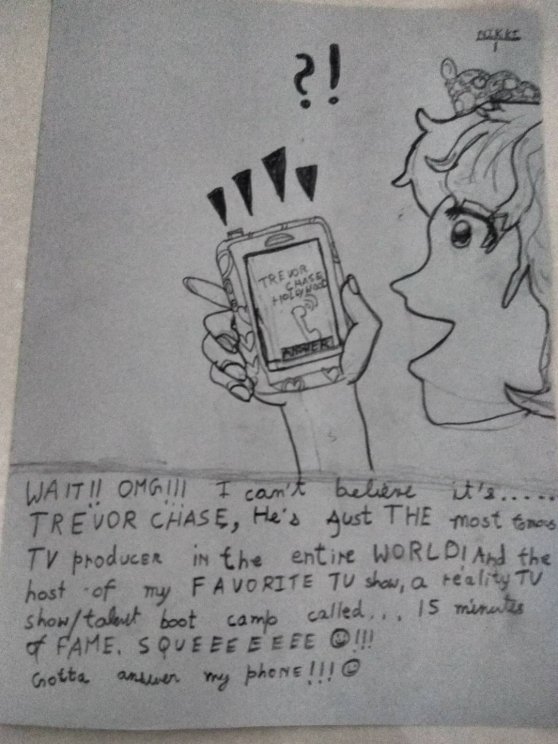 NIKKI
?!
TREVOR
CHASE
HOLLYWOOD
ANSWER
WAIT!! OMG!!! I can't believe it's.....
TREVOR CHASE, He's just THE most famous
TV producer in the entire WORLD! And the
host of my FAVORITE TV show, a reality TV
show/talent boot camp called... 15 minutes
of FAME. SQUEEEEEEE ☺!!!
Gotta answer my phone!!! ☺